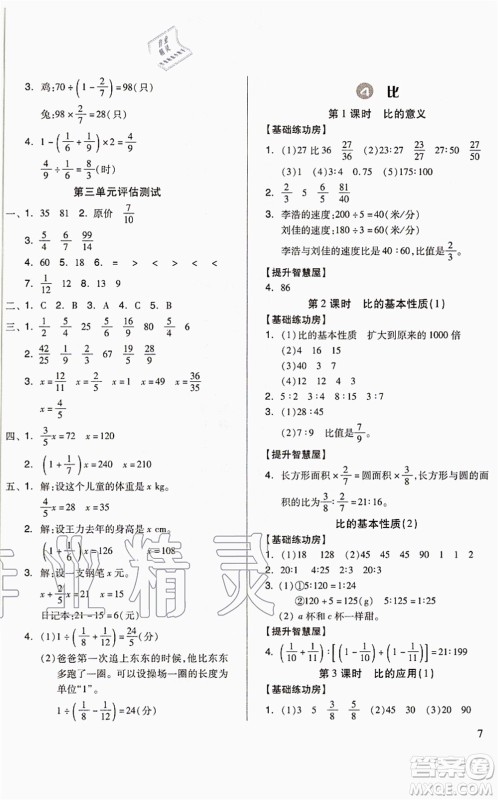 3. 鸡:70÷(1-2/7)=98(只)
兔:98×2/7=28(只)
4. 1-(1/6+1/9)×2=4/9
4/9÷1/6=8/3(时)
第三单元评估测试
一、1. 35 81 2. 原价 7/10
3. 5/4 6/5 99/14
4. 60 18 5. 9 6. = > < > < >
7. 1/12 8. 12 9. 13
二、1. C 2. B 3. A 4. B 5. C
三、1. 1/6 1/4 25/9 1/24 25/9 5/8
2. 42/25 1/30 1/12 8/19 67/28 3/5
3. x=12/11 x=2/3 x=48 x=36/35
x=4/9 x=25/6
四、1. 3/5x=72 x=120
2. (1+1/7)x=240 x=210
五、1. 解:设这个儿童的体重是 x kg。
4/5x=28 x=35
2. 解:设王力去年的身高是 x cm。
3. 解:设一支钢笔 x 元。
x+2/5x=21 x=15
日记本:21-15=6(元)
4. (1)1÷(1/8+1/24)=6(分)
(2)爸爸第一次追上东东的时候,他比东
东多跑了一圈。可以设操场一圈的长度为
单位“1”。
1÷(1/8-1/24)=12(分)
4 比
第 1 课时 比的意义
【基础练功房】
1. (1)27 比 36 27/36 (2)23∶27 23/27 27∶50
(3)1 (4)24 24 25
2. 2/3 5 15/4
3. 李浩的速度:200÷5=40(米/分)
刘佳的速度:180÷3=60(米/分)
李浩与刘佳的速度比是 40∶60,比值是2/3。
【提升智慧屋】
4. 86
第 2 课时 比的基本性质(1)
【基础练功房】
1. (1)比的基本性质 扩大到原来的 1000 倍
(2)4 16 15
(3)40 36 42
2. 5∶8 4∶1 3∶5 4∶7
3. (1)2∶1 28
(2)7∶9 比值是7/9。
【提升智慧屋】
4. 长方形面积×2/7=圆面积×3/8,长方形面
积∶圆的面积=3/8∶2/7=21∶16。
比的基本性质(2)
【基础练功房】
1. (1)6 18 128 (2)9 12 15 9
2. 20∶1 25∶14 3∶2 20∶1
3. (1)①5∶120=1∶24
②120+5=125(g) 5∶125=1∶25
(2)a 杯和 c 杯一样甜。
【提升智慧屋】
4. (1/10+1/11)∶[(1-1/10)+(1-1/11)]=21∶199
第 3 课时 比的应用(1)
【基础练功房】
1. (1)3 45 (2)5 90
7
作业精灵
答案圈
MXQE.COM